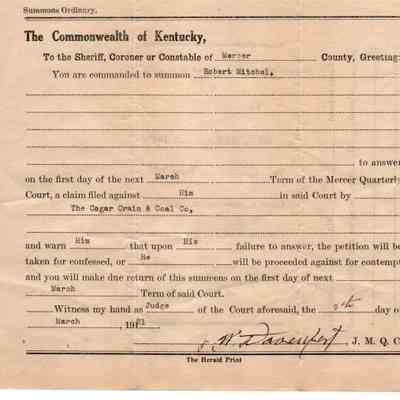 Summons Ordinary.
The Commonwealth of Kentucky,
To the Sheriff, Coroner or Constable of Mercer County, Greeting:
You are commanded to summon Robert Mitchel,
to answer
on the first day of the next March Term of the Mercer Quarterly
Court, a claim filed against Him in said Court by
The Cogar Grain & Coal Co,
and warn Him that upon His failure to answer, the petition will be
taken for confessed, or He will be proceeded against for contempt
and you will make due return of this summons on the first day of next
March Term of said Court.
Witness my hand as Judge of the Court aforesaid, the day o
March , 19
W Davenport J. M. Q. C
The Herald Print